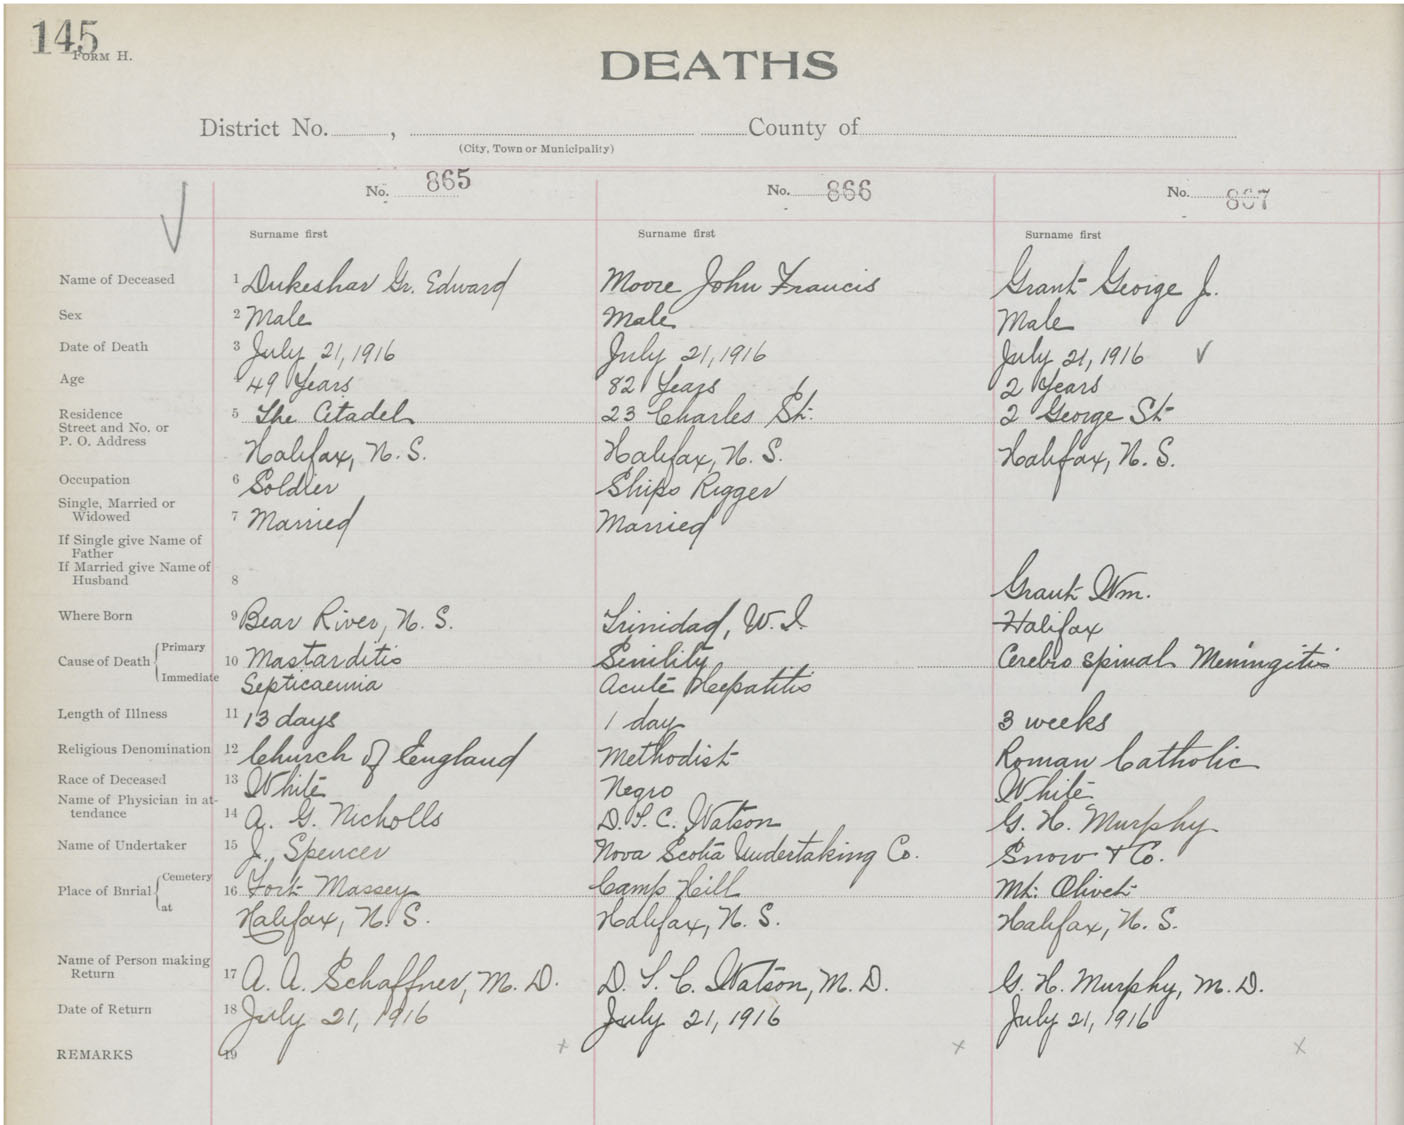 145
FORM H.
DEATHS
District No. , County of
(City, Town or Municipality)
No. 865 No. 866 No. 867
Surname first Surname first Surname first
Name of Deceased 1 Dukeshar Gr. Edward Moore John Francis Grant George J.
Sex 2 Male Male Male
Date of Death 3 July 21, 1916 July 21, 1916 July 21, 1916
Age 4 49 Years 82 Years 2 Years
Residence
Street and No. or
P. O. Address
5 The Citadel 23 Charles St. 2 George St
Halifax, N. S. Halifax, N. S. Halifax, N. S.
Occupation 6 Soldier Ships Rigger
Single, Married or
Widowed
7 Married Married
If Single give Name of
Father
If Married give Name of
Husband
8 Grant Wm.
Where Born 9 Bear River, N. S. Trinidad, W. I. Halifax
Cause of Death { Primary
Immediate
10 Mastarditis Senility Cerebro spinal Meningitis
Septicaemia Acute Heepatitis
Length of Illness 11 13 days 1 day 3 weeks
Religious Denomination 12 Church of England Methodist Roman Catholic
Race of Deceased 13 White Negro White
Name of Physician in at-
tendance
14 A. G. Nicholls D. S. C. Watson G. H. Murphy
Name of Undertaker 15 J. Spencer Nova Scotia Undertaking Co. Snow & Co.
Place of Burial { Cemetery
at
16 Fort Massey Camp Hill Mt. Olivet
Halifax, N. S. Halifax, N. S. Halifax, N. S.
Name of Person making
Return
17 A. A. Schaffner, M. D. D. S. C. Watson, M. D. G. H. Murphy, M. D.
Date of Return 18 July 21, 1916 July 21, 1916 July 21, 1916
REMARKS 19 x x x